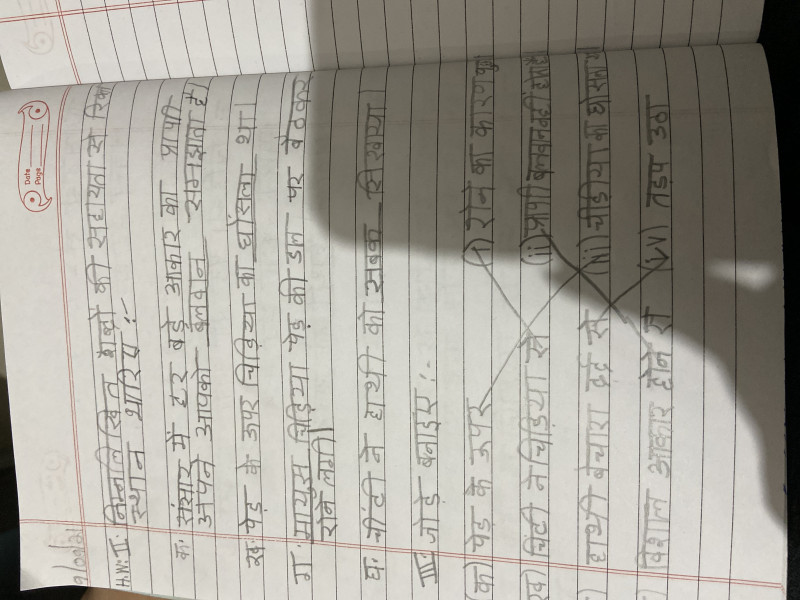 Date
Page
H.W: II: निम्नलिखित शब्दों की सहायता से रिक्त
स्थान भारिए :-
क: संसार में हर बड़े आकार का प्राणी
अपने आपको बलवान समझता है।
ख: पेड़ के ऊपर चिड़िया का घोंसला था।
ग: मायुस चिड़िया पेड़ की डाल पर बैठकर
रोने लगी।
घ: चींटी ने हाथी को सबक सिखाया।
III: जोड़े बनाइए :-
(क) पेड़ के ऊपर (i) रोने का कारण
ख) चिंटी ने चिड़िया से (ii) प्राणी बलवान
) हाथी बेचारा दर्द से (iii) चीड़िया का घोसला
) विशाल आकार होने से (iv) तड़प उठा